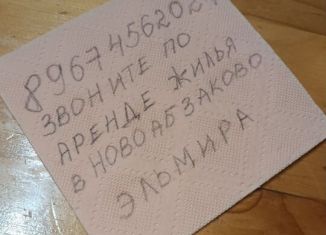 ЗВОНИТЕ ПО
АРЕНДЕ ЖИЛЬЯ
В НОВОАБЗАКОВО
ЭЛЬМИРА